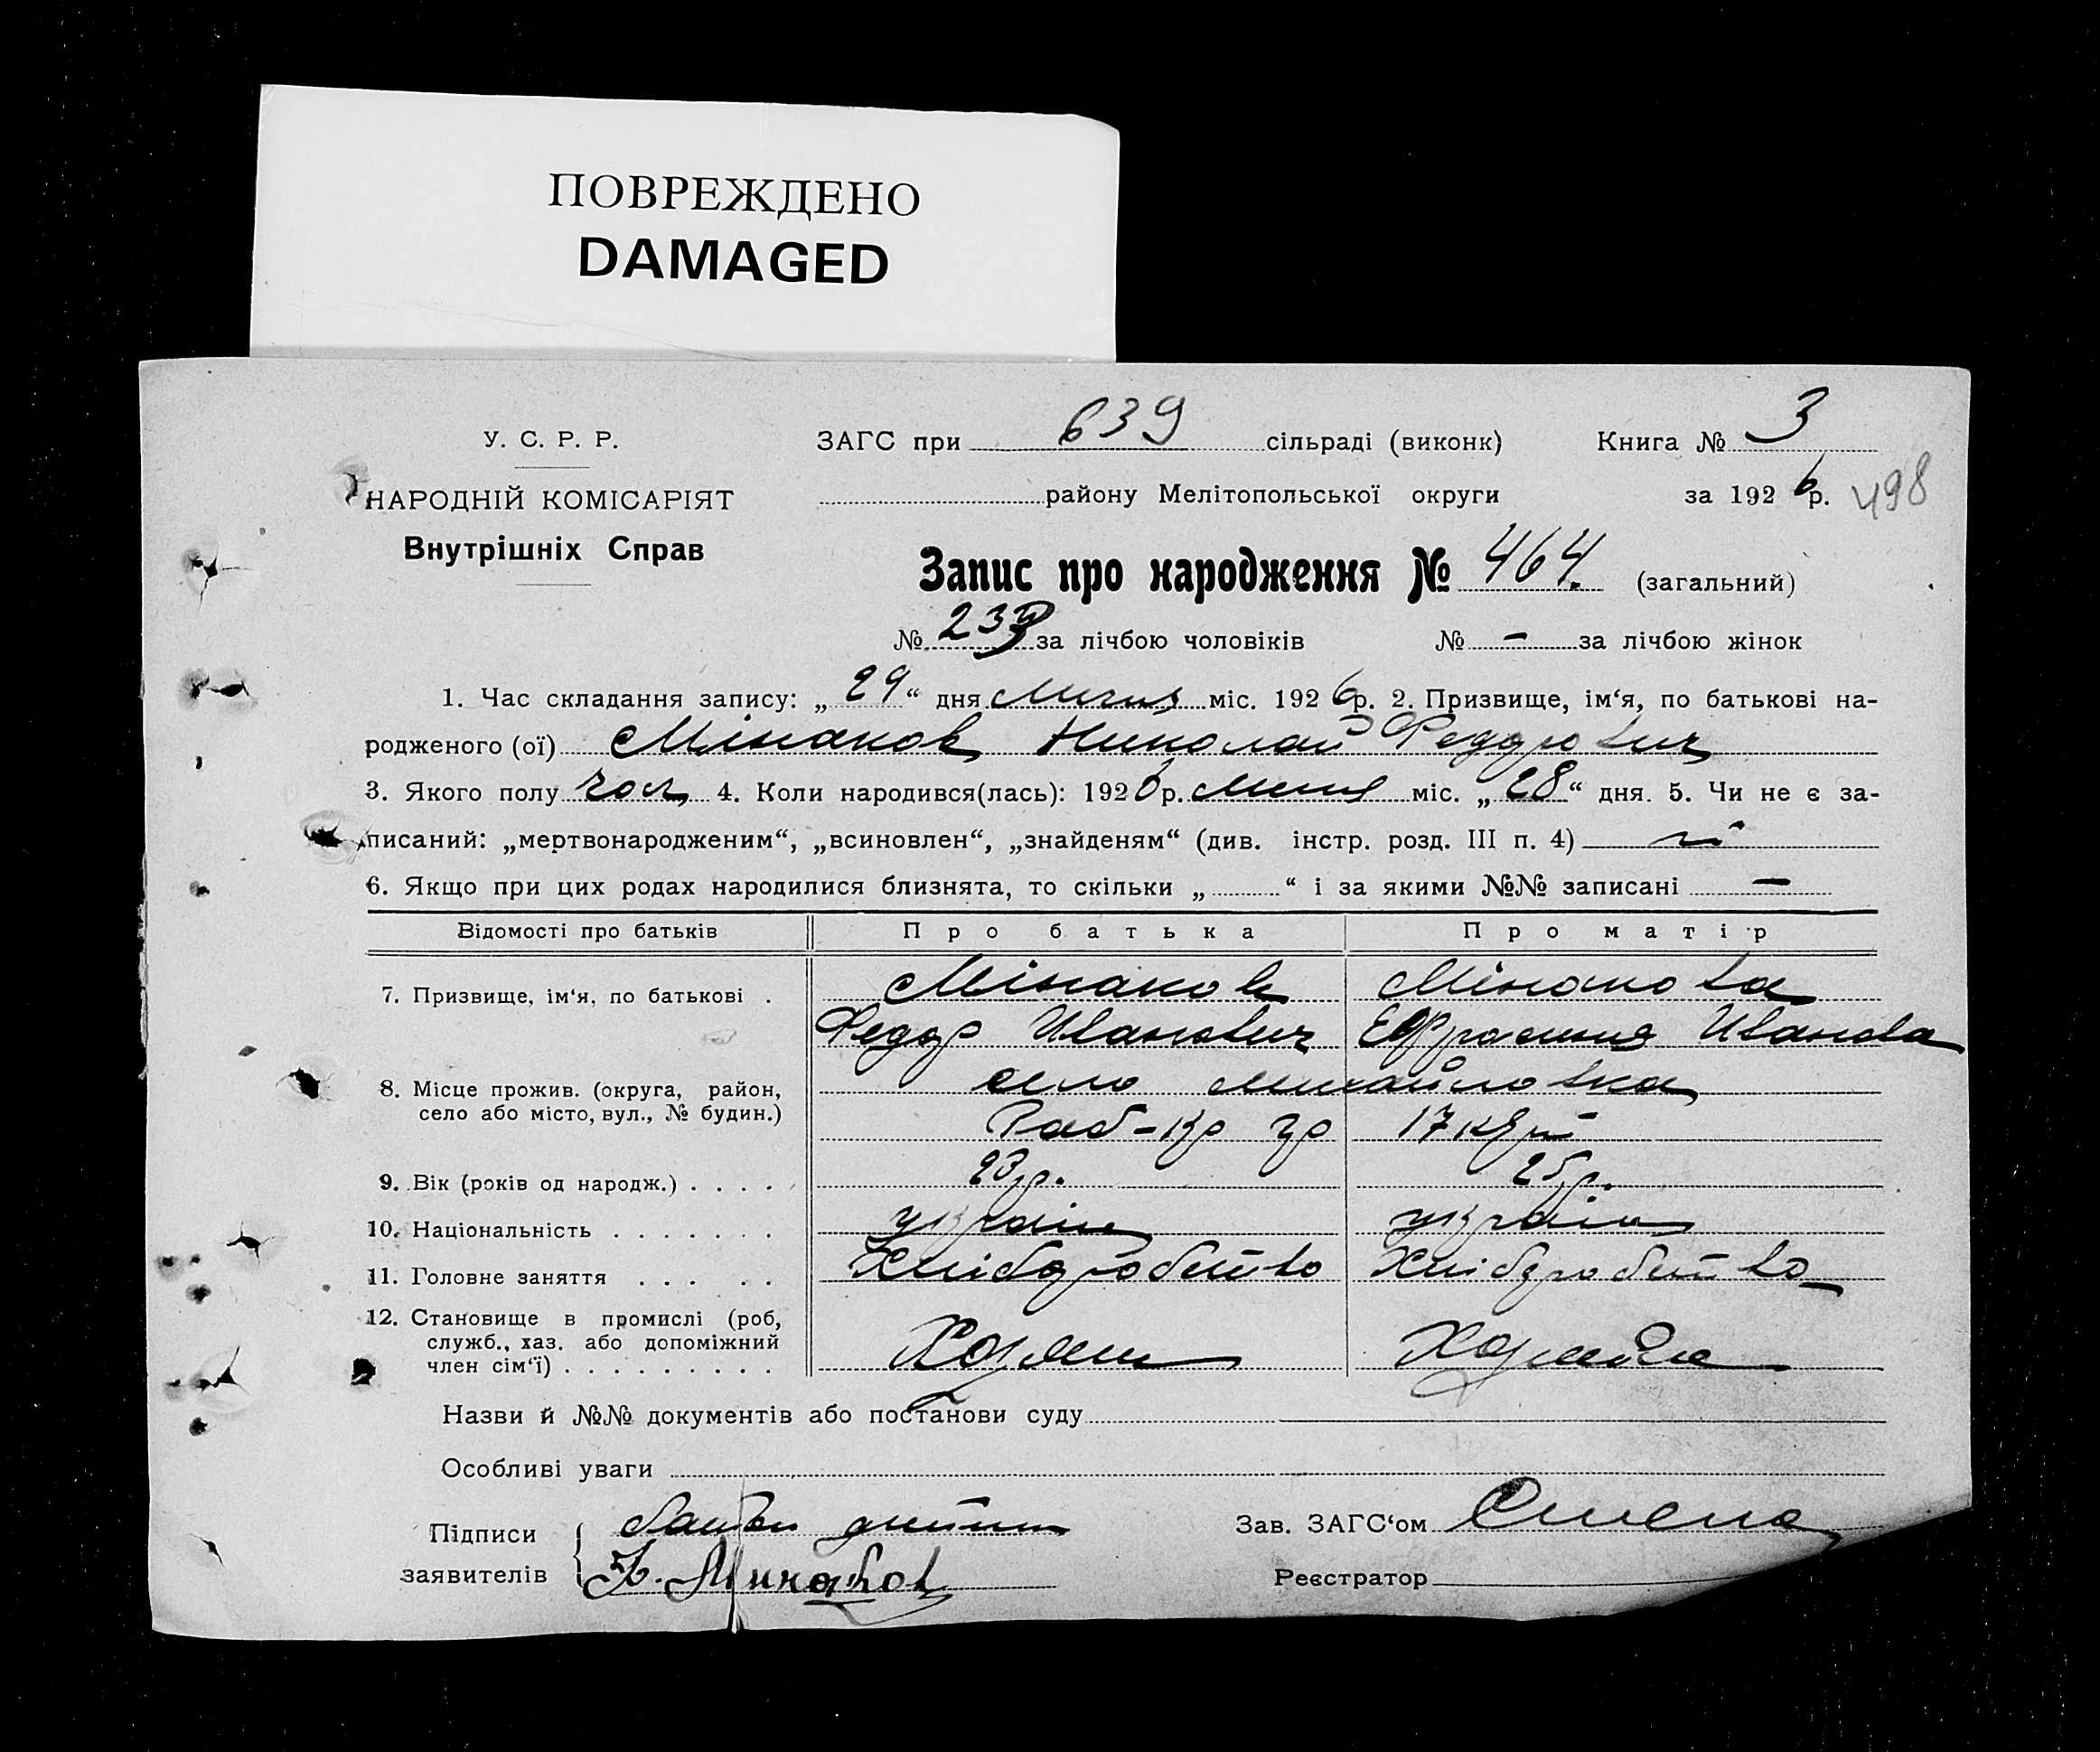 ПОВРЕЖДЕНО
DAMAGED
У. С. Р. Р.
НАРОДНІЙ КОМІСАРІЯТ
Внутрішніх Справ
ЗАГС при 639 сільраді (виконк)
району Мелітопольської округи
Книга № 3
за 1926 р.
498
Запис про народження № 464. (загальний)
№ за лічбою чоловіків № – за лічбою жінок
1. Час складання запису: „29“ дня міс. 1926 р. 2. Призвище, ім‘я, по батькові на-
родженого (ої) Мінаков Николай Федорович
3. Якого полу чол 4. Коли народився(лась): 1926 р. міс. „28“ дня. 5. Чи не є за-
писаний: „мертвонародженим“, „всиновлен“, „знайденям“ (див. інстр. розд. III п. 4) ні
6. Якщо при цих родах народилися близнята, то скільки „ “ і за якими №№ записані —
Відомості про батьків Про батька Про матір
7. Призвище, ім‘я, по батькові . Мінаков Мінакова
Федор Иванович Ефросиния Иванова
8. Місце прожив. (округа, район, село Михайловка
село або місто, вул., № будин.) Раб-кр 17
9. Вік (років од народж.) . . . . 23 р. 25 р.
10. Національність . . . . . . . україн україн
11. Головне заняття . . . . . Хліборобство Хліборобство
12. Становище в промислі (роб,
служб., хаз. або допоміжний Хозяин Хозяйка
член сім‘ї) . . . . . . . . .
Назви й №№ документів або постанови суду
Особливі уваги
Підписи
заявителів
Ф. Минаков
Зав. ЗАГС‘ом
Реєстратор